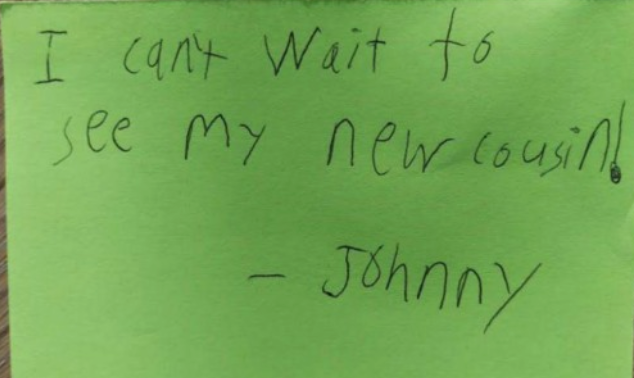 I can't Wait to
see my new cousin!
- Johnny